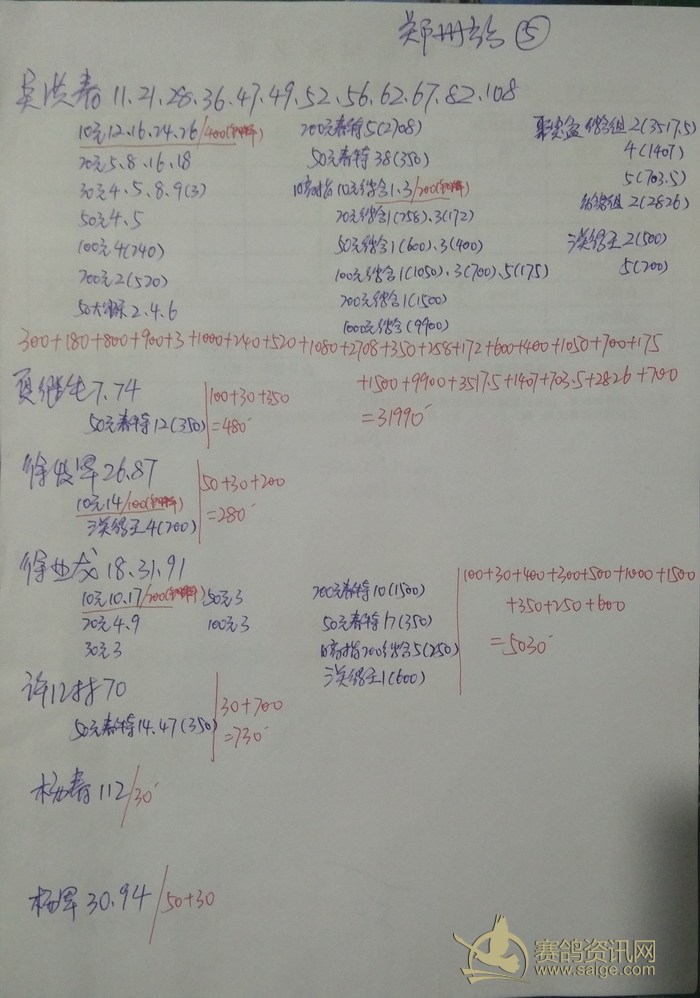 郑州站 ⑤
吴洪春 11.21.28.36.47.49.52.56.62.67.82.108
10元12.16.24.26/400
20元5.8.16.18
30元4.5.8.9(3)
50元4.5
100元4(240)
200元2(520)
50大 2.4.6
200元春特5(2708)
50元春特38(350)
10元组合1.3/200
20元组合1(258).3(172)
50元组合1(600).3(400)
100元组合1(1050).3(700).5(175)
200元组合1(1500)
1000元组合(9900)
聚宝盆 组2(3517.5)
4(1407)
5(703.5)
组2(2826)
2(500)
5(200)
300+180+800+900+3+1000+240+520+1080+2708+350+258+172+600+400+1050+700+175
+1500+9900+3517.5+1407+703.5+2826+700
=31990
夏继生7.74
50元春特12(350)
100+30+350
=480
徐俊军26.87
10元14/100
4(200)
50+30+200
=280
徐业成18.31.91
10元10.17/200 50元3
20元4.9 100元3
30元3
200元春特10(1500)
50元春特17(350)
200组合5(250)
1(600)
100+30+400+300+500+1000+1500
+350+250+600
=5030
许 70
50元春特14.47(350)
30+700
=730
杨春112/30
杨军30.94/50+30
赛鸽资讯网
www.saige.com